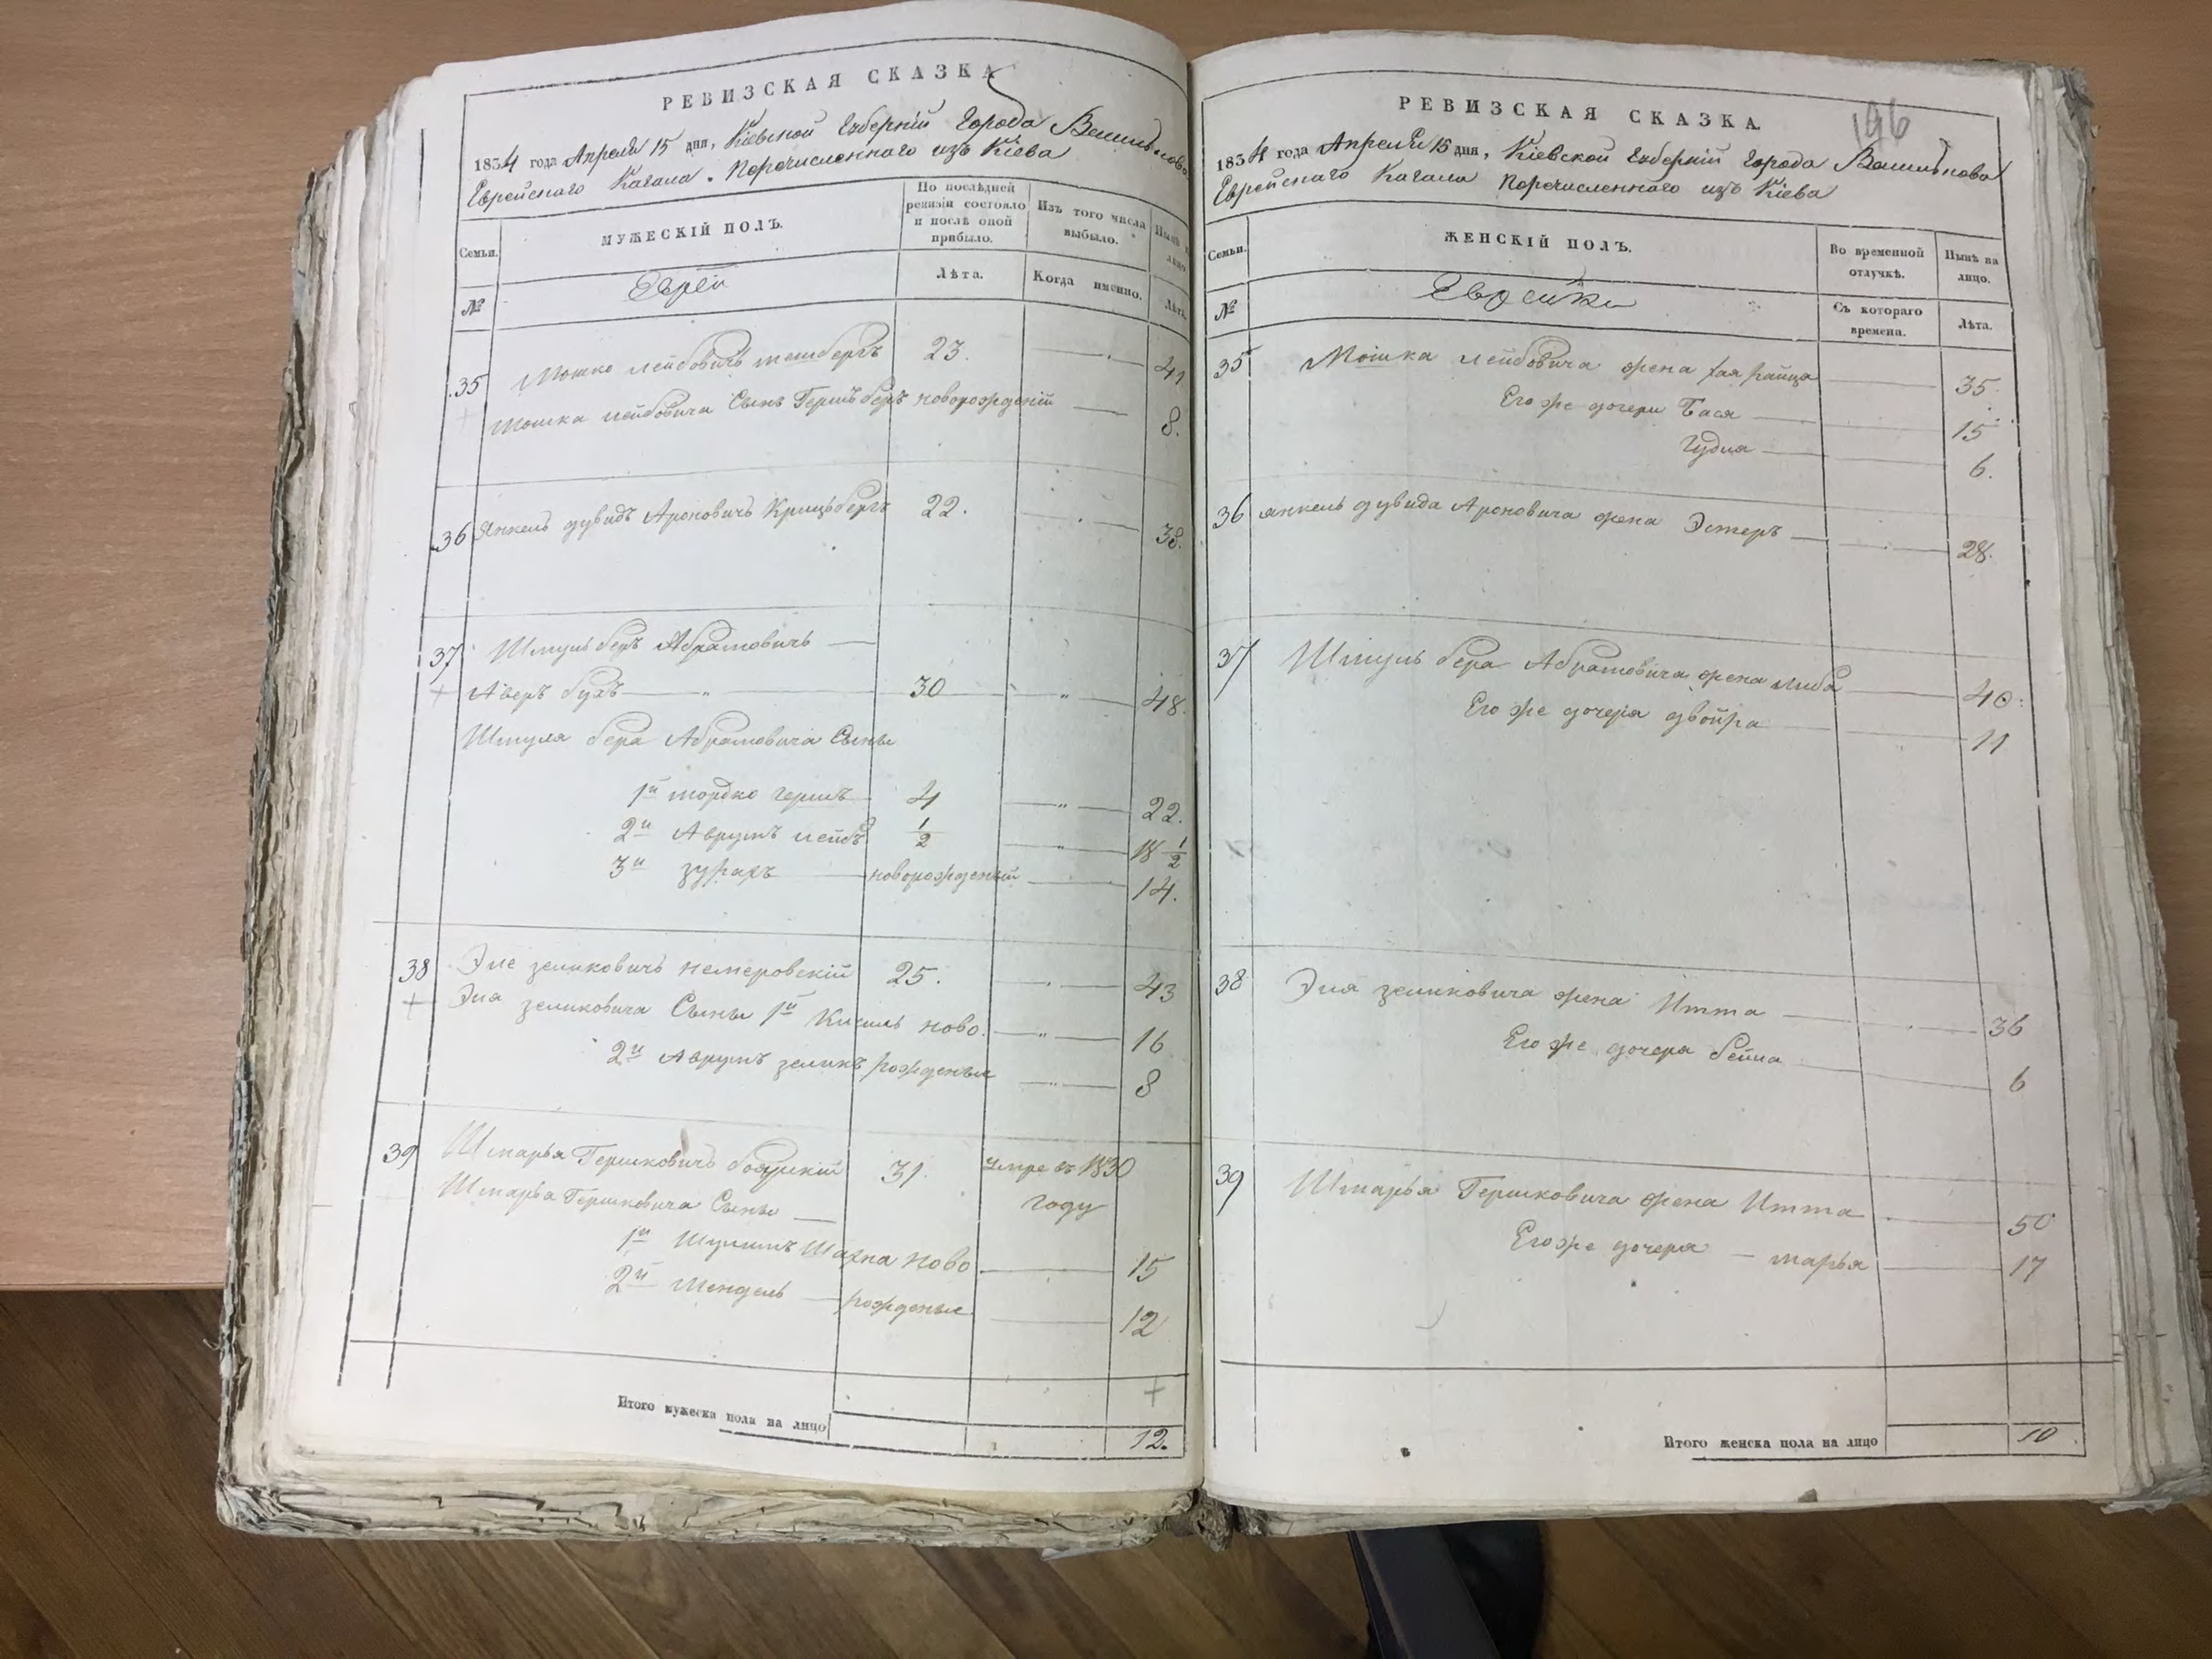 РЕВИЗСКАЯ СКАЗКА
1834 года Апреля 15 дня, Кіевской Губерніи Города Василькова
Еврейскаго Кагала. Перечисленнаго изъ Кіева
Семьи.
МУЖЕСКІЙ ПОЛЪ.
По послѣдней ревизіи состояло и послѣ оной прибыло.
Изъ того числа выбыло.
№
Еврей
Лѣта.
Когда именно.
Лѣта.
35 Мошко Лейбовичъ 23. 41
Мошка Лейбовича Сынъ Гершъ беръ новорожденій 8.
36 Янкель дувидъ Ароновичъ 22. 38.
37 Шмуль беръ Абрамовичъ
30 48.
Шмуля бера Абрамовича Сыны
1й мордко гершъ 4 22.
2й Аврумъ лейбъ ½ 18 ½
3й новорожденый 14.
38 Эле зельковичъ немеровскій 25. 43
Эля зельковича Сыны 1й Кисиль ново. 16
2й Аврумъ зеликъ рожденые 8
39 Шмарья Гершковичъ 31. умре въ 1830
году
Шмарья Гершковича Сыны
1й Шахна ново 15
2й Мендель рожденые 12
Итого мужеска пола на лицо 12.
196
РЕВИЗСКАЯ СКАЗКА
1834 года Апреля 15 дня, Кіевской Губерніи Города Василькова
Еврейскаго Кагала Перечисленнаго изъ Кіева
Семьи.
ЖЕНСКІЙ ПОЛЪ.
Во временной отлучкѣ.
Нынѣ на лицо.
№
Еврейки
Съ котораго времена.
Лѣта.
35 Мошка Лейбовича жена 35.
Его же дочери Бася 15
6.
36 янкель дувида Ароновича жена Эстеръ 28.
37 Шмуль бера Абрамовича жена либа 40.
Его же дочеря двойра 11
38 Эля зельковича жена Итта 36
Его же дочеря бейла 6
39 Шмарья Гершковича жена Итта 50
Его же дочеря — марья 17
Итого женска пола на лицо 10